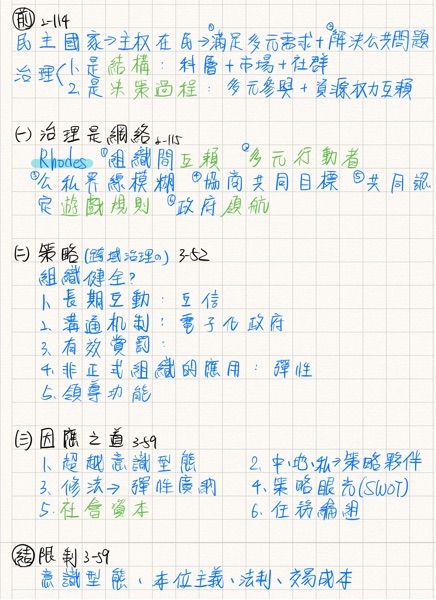 前 2-114
民主國家→主權在民→①滿足多元需求+②解決公共問題
治理 1.是結構：科層+市場+社群
2.是決策過程：多元參與+資源權力互賴
(一) 治理是網絡 2-115
Rhodes ①組織間互賴 ②多元行動者
③公私界線模糊 ④協商共同目標 ⑤共同認
定遊戲規則 ⑥政府領航
(二) 策略(跨域治理の) 3-52
組織健全?
1. 長期互動：互信
2. 溝通机制：電子化政府
3. 有效賞罰：
4. 非正式組織的應用：彈性
5. 領導功能
(三) 因應之道 3-59
1. 超越意識型態 2. 中、地、私→策略夥伴
3. 修法→彈性廣納 4. 策略眼光(SWOT)
5. 社會資本 6. 任務編組
結 限制 3-59
意識型態、本位主義、法制、交易成本